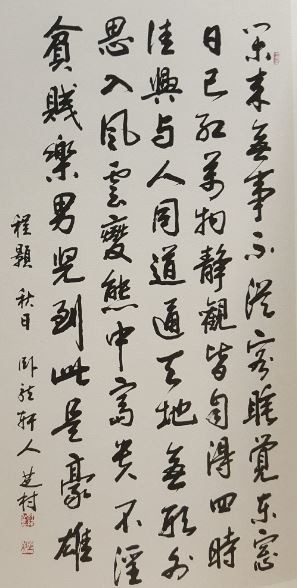 閒来無事不從容睡覺東窓
日已紅萬物靜觀皆自得四時
佳興与人同道通天地無形外
思入風雲變態中富貴不淫
貧賤樂男兒到此是豪雄
程顥 秋日 臥龍軒人 芝村